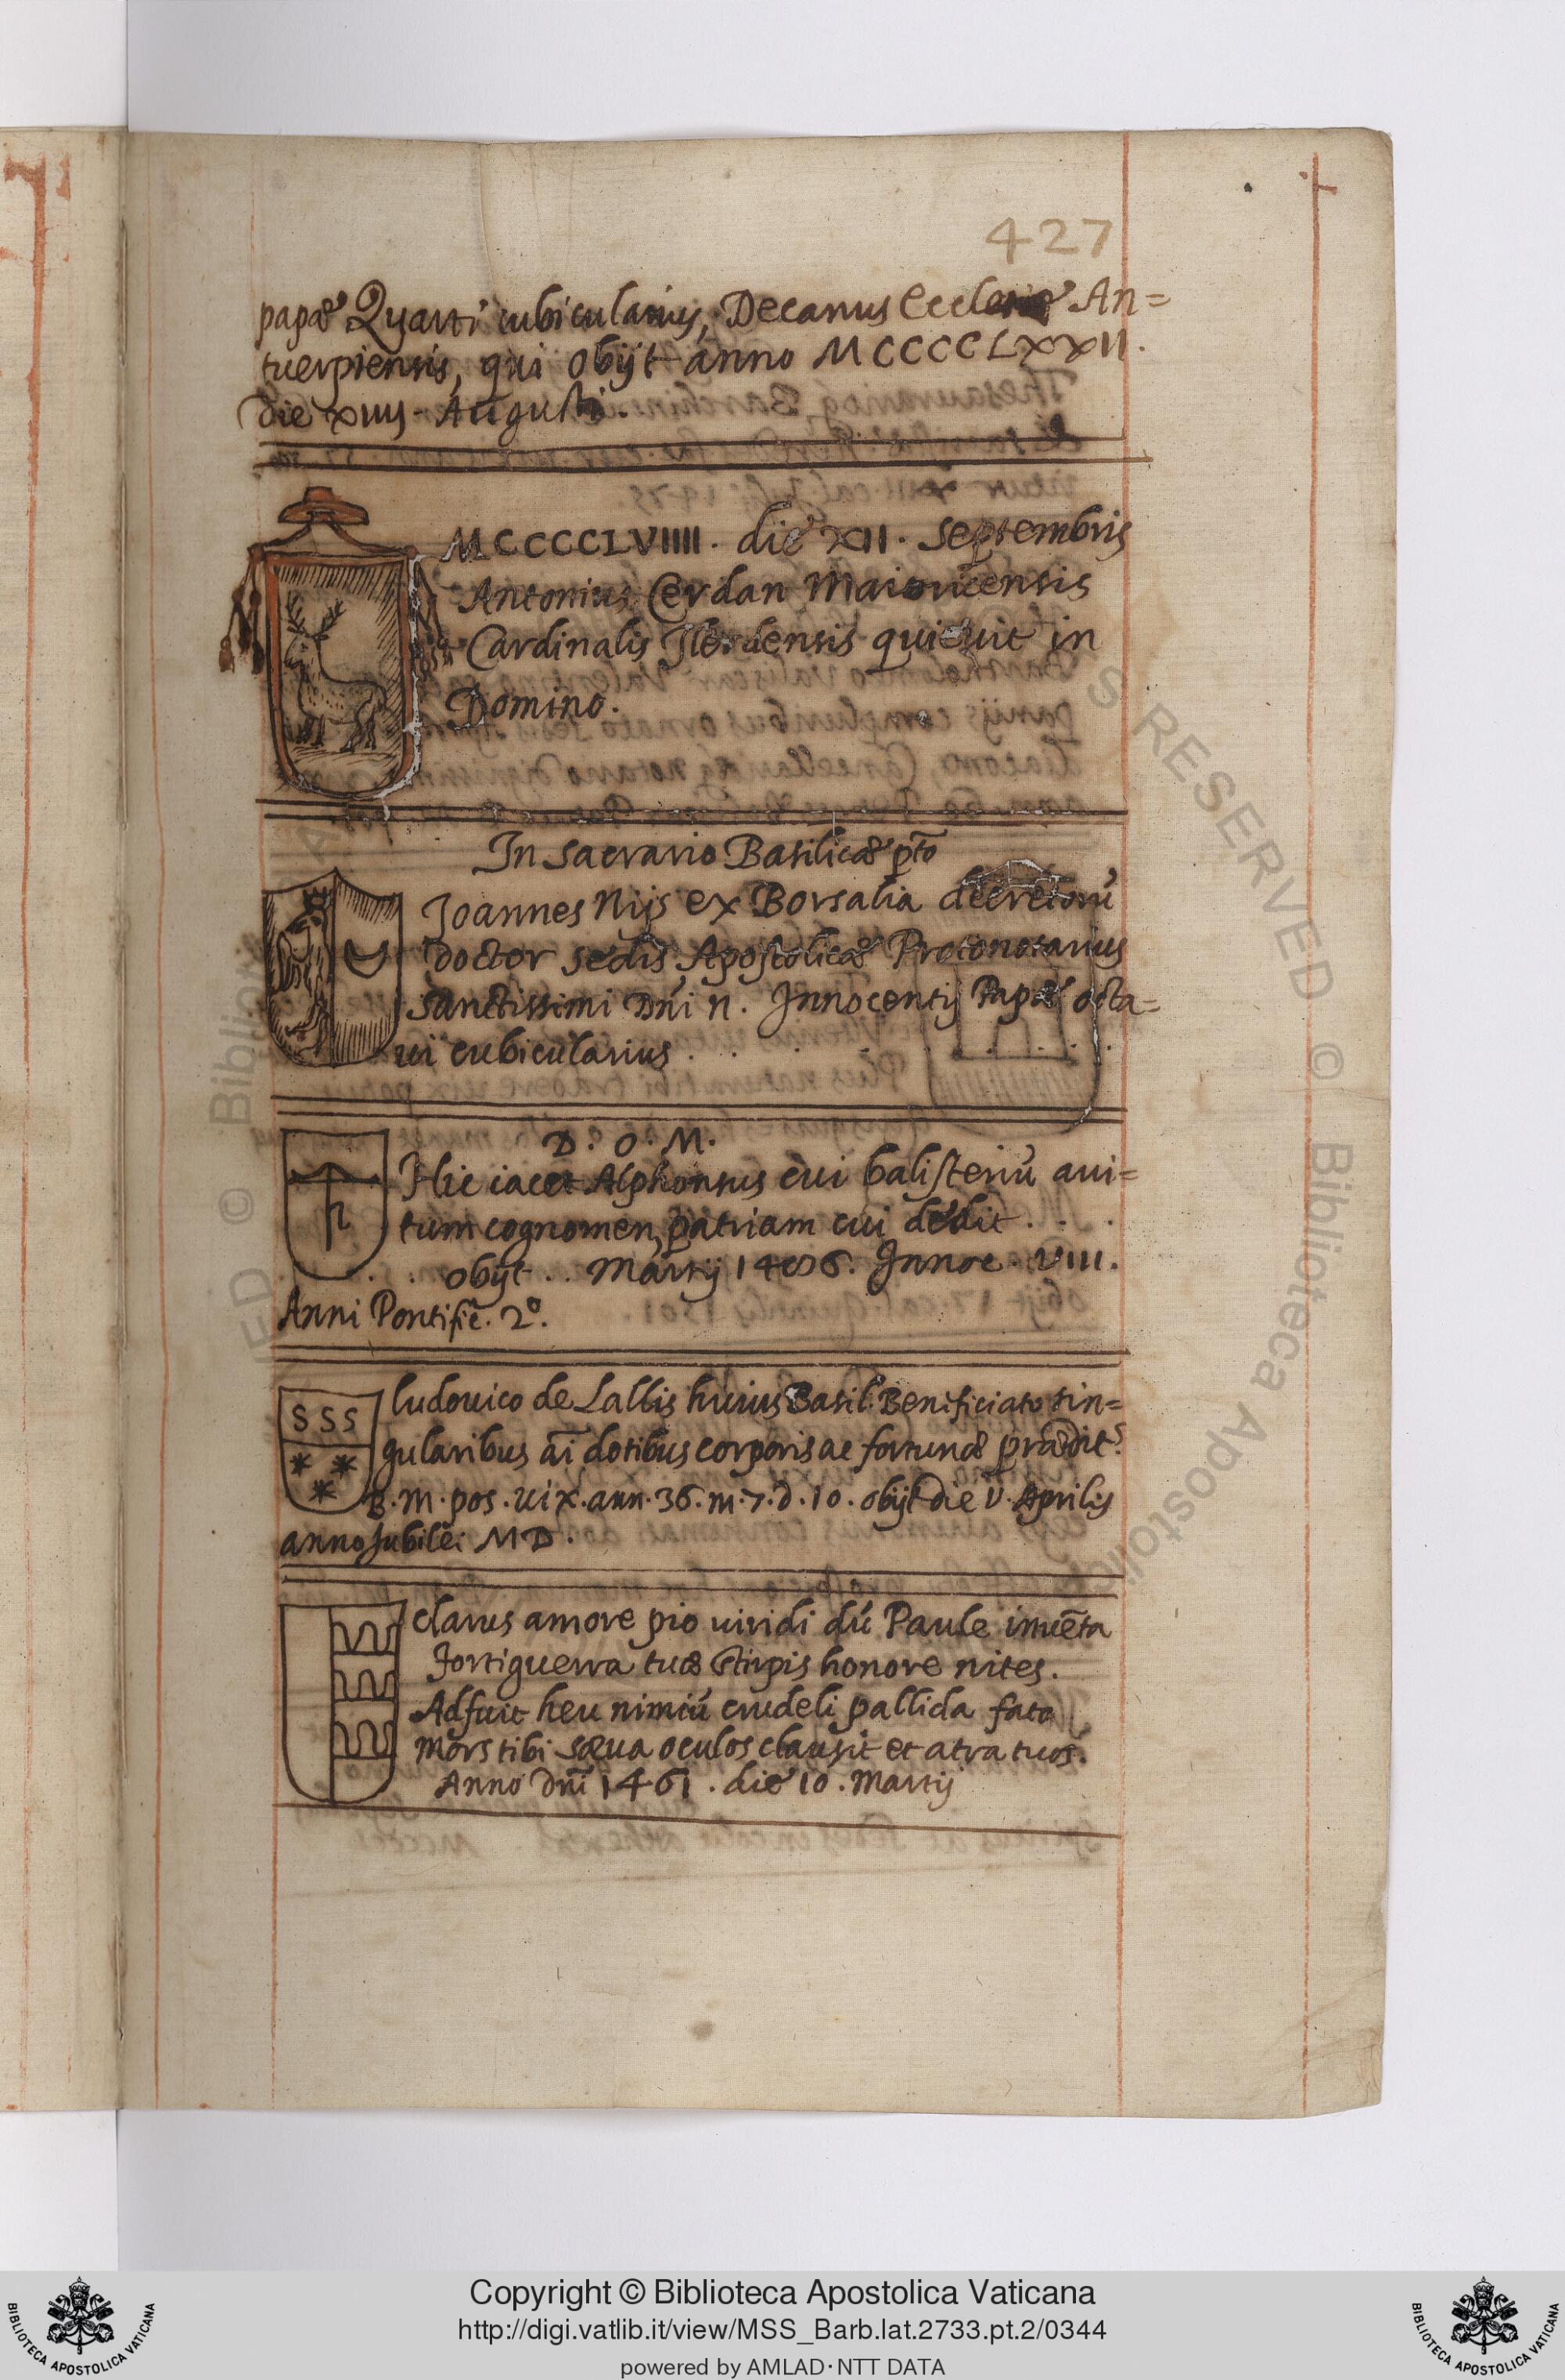 427
papæ Quarti cubicularius, Decanus Ecclesiæ An=
tuerpiensis, qui obijt anno MCCCCLXXII.
die xiiij. Augusti.
MCCCCLVIIII. die XII. Septembris
Antonius Cerdan Maioricensis
Cardinalis Ilerdensis quieuit in
Domino.
In sacrario Basilicæ pto
Joannes Nijs ex Borsalia decretorū
doctor sedis Apostolicæ Protonotarius
sanctissimi Dñi n. Innocentij Papæ octa=
ui cubicularius . . . . . . .
D. O. M.
Hic iacet Alphonsus cui balisteriū aui=
tum cognomen, patriam cui dedit . . .
. . . obijt . . Martij 1486. Innoc. VIII.
Anni Pontific. 2º.
ludouico de Lallis huius Basil. Benificiato sin=
SSS
gularibus aī dotibus corporis ac fortunæ prædit.
B. M. pos. uix. ann. 36. m. 7. d. 10. obijt die V. Aprilis
anno Jubilei MD.
clarus amore pio uiridi dū Paule iuuēta
Fortiguerra tuæ stirpis honore nites.
Adfuit heu nimiū crudeli pallida fato
Mors tibi sæua oculos clausit et atra tuos.
Anno Dñi 1461. die 10. Martij
Copyright © Biblioteca Apostolica Vaticana
http://digi.vatlib.it/view/MSS_Barb.lat.2733.pt.2/0344
powered by AMLAD·NTT DATA
BIBLIOTECA APOSTOLICA VATICANA
BIBLIOTECA APOSTOLICA VATICANA